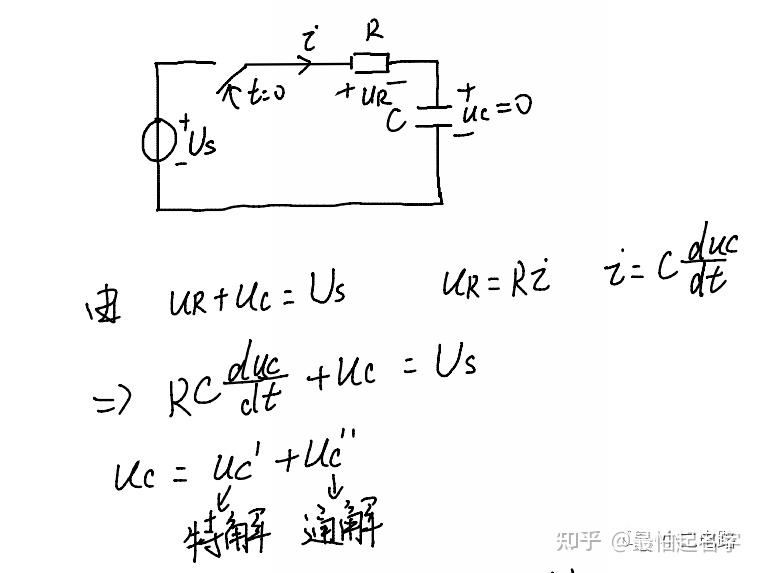 i R
t=0 + uR − C + uC=0 −
+ Us −
由 uR+uC=Us uR=Ri i=C duc/dt
=> RC duc/dt + uC = Us
uC = uC' + uC''
↓ ↓
特解 通解
知乎 @最怕起名字